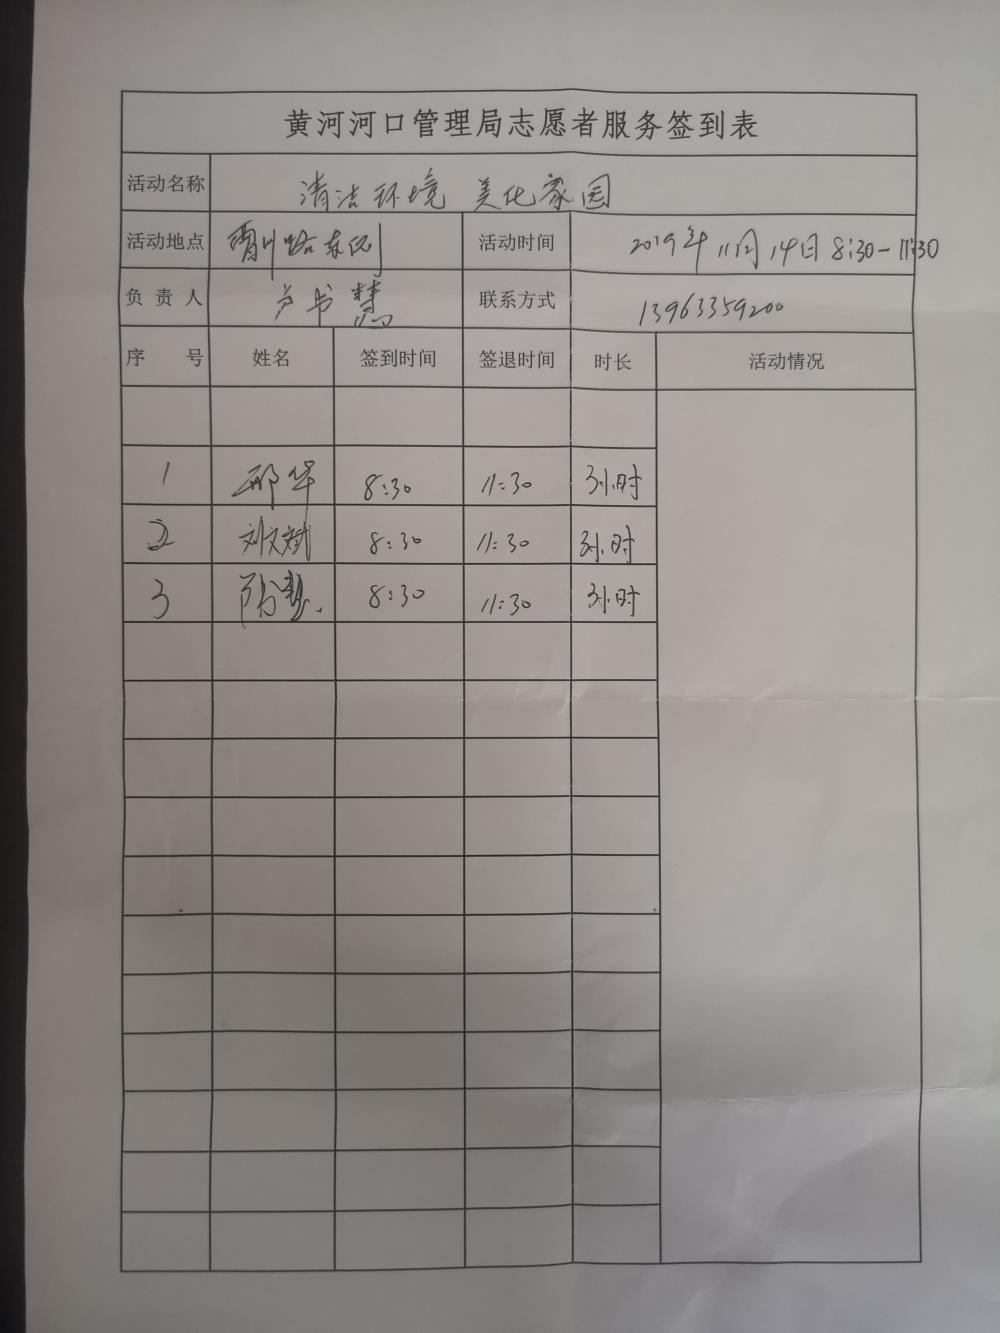 黄河河口管理局志愿者服务签到表
活动名称 清洁环境 美化家园
活动地点 霄川路东侧 活动时间 2019年11月14日8:30-11:30
负责人 卢书慧 联系方式 13963359200
序号 姓名 签到时间 签退时间 时长 活动情况
1 邢华 8:30 11:30 3小时
2 刘文斌 8:30 11:30 3小时
3 8:30 11:30 3小时